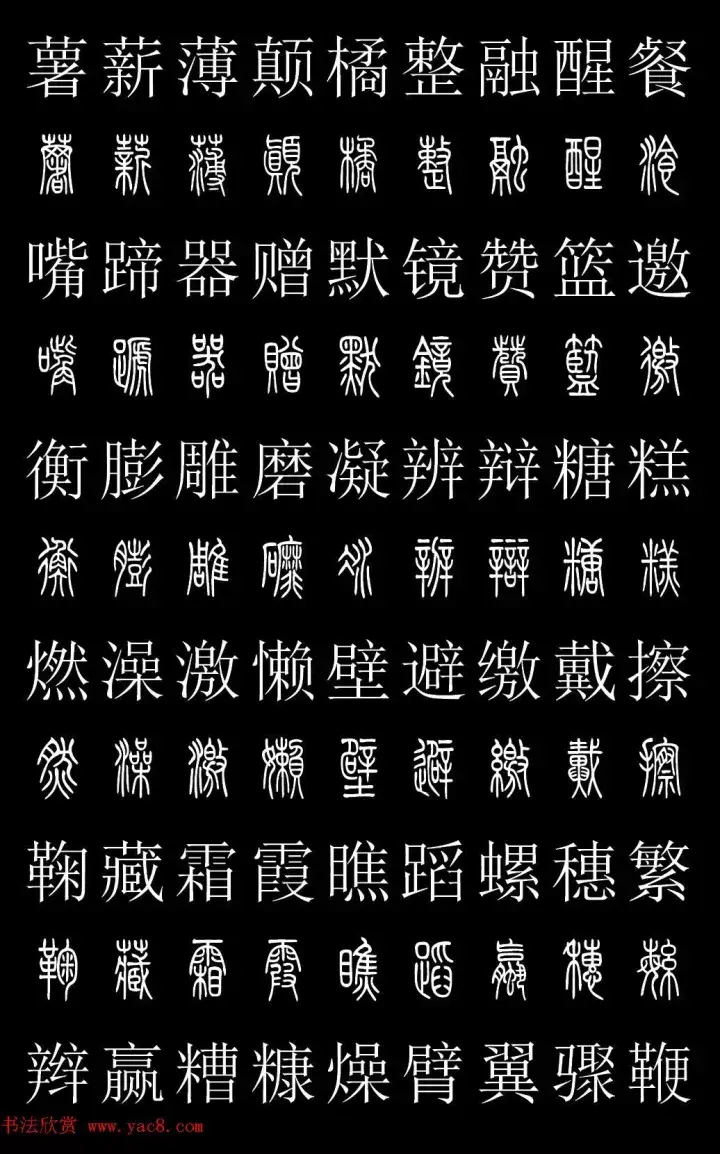 薯薪薄颠橘整融醒餐
薯薪薄顛橘整融醒湌
嘴蹄器赠默镜赞篮邀
嘴蹏器贈默鏡贊籃徼
衡膨雕磨凝辨辩糖糕
衡膨雕礳冰辨辯糖糕
燃澡激懒壁避缴戴擦
然澡激嬾壁避繳戴擦
鞠藏霜霞瞧蹈螺穗繁
鞠藏霜霞瞧蹈蠃穗緐
辫赢糟糠燥臂翼骤鞭
书法欣赏 www.yac8.com